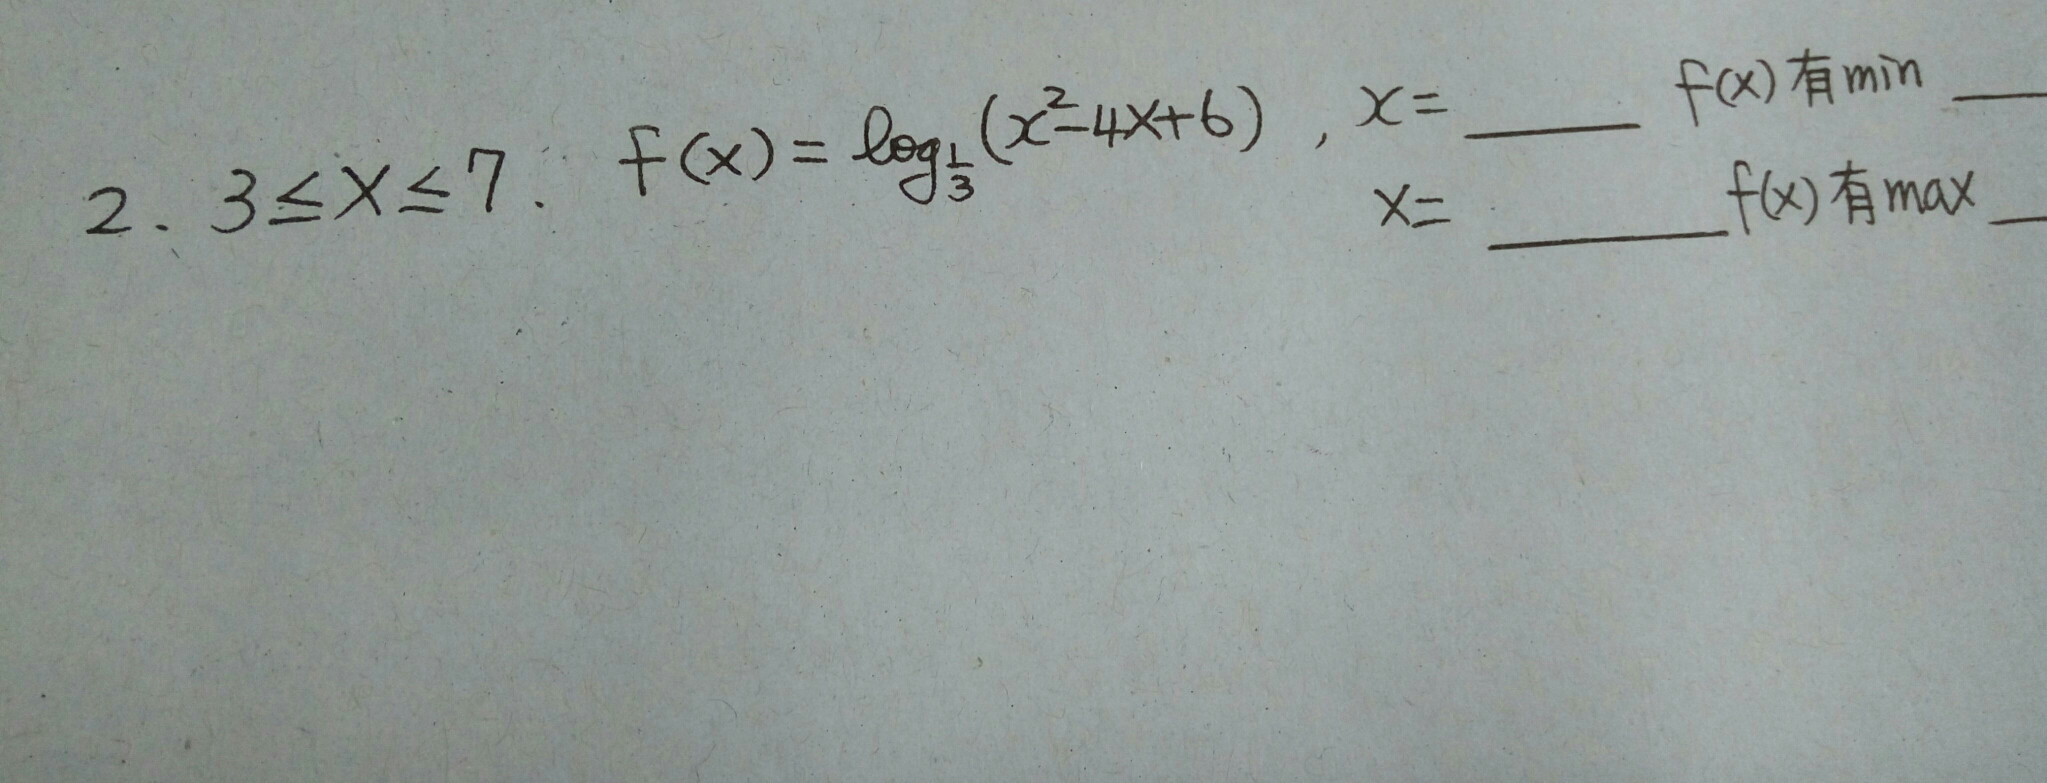 2. 3≤x≤7. f(x)=log_{1/3}(x²-4x+6), x=____ f(x)有min __
x=____ f(x)有max __